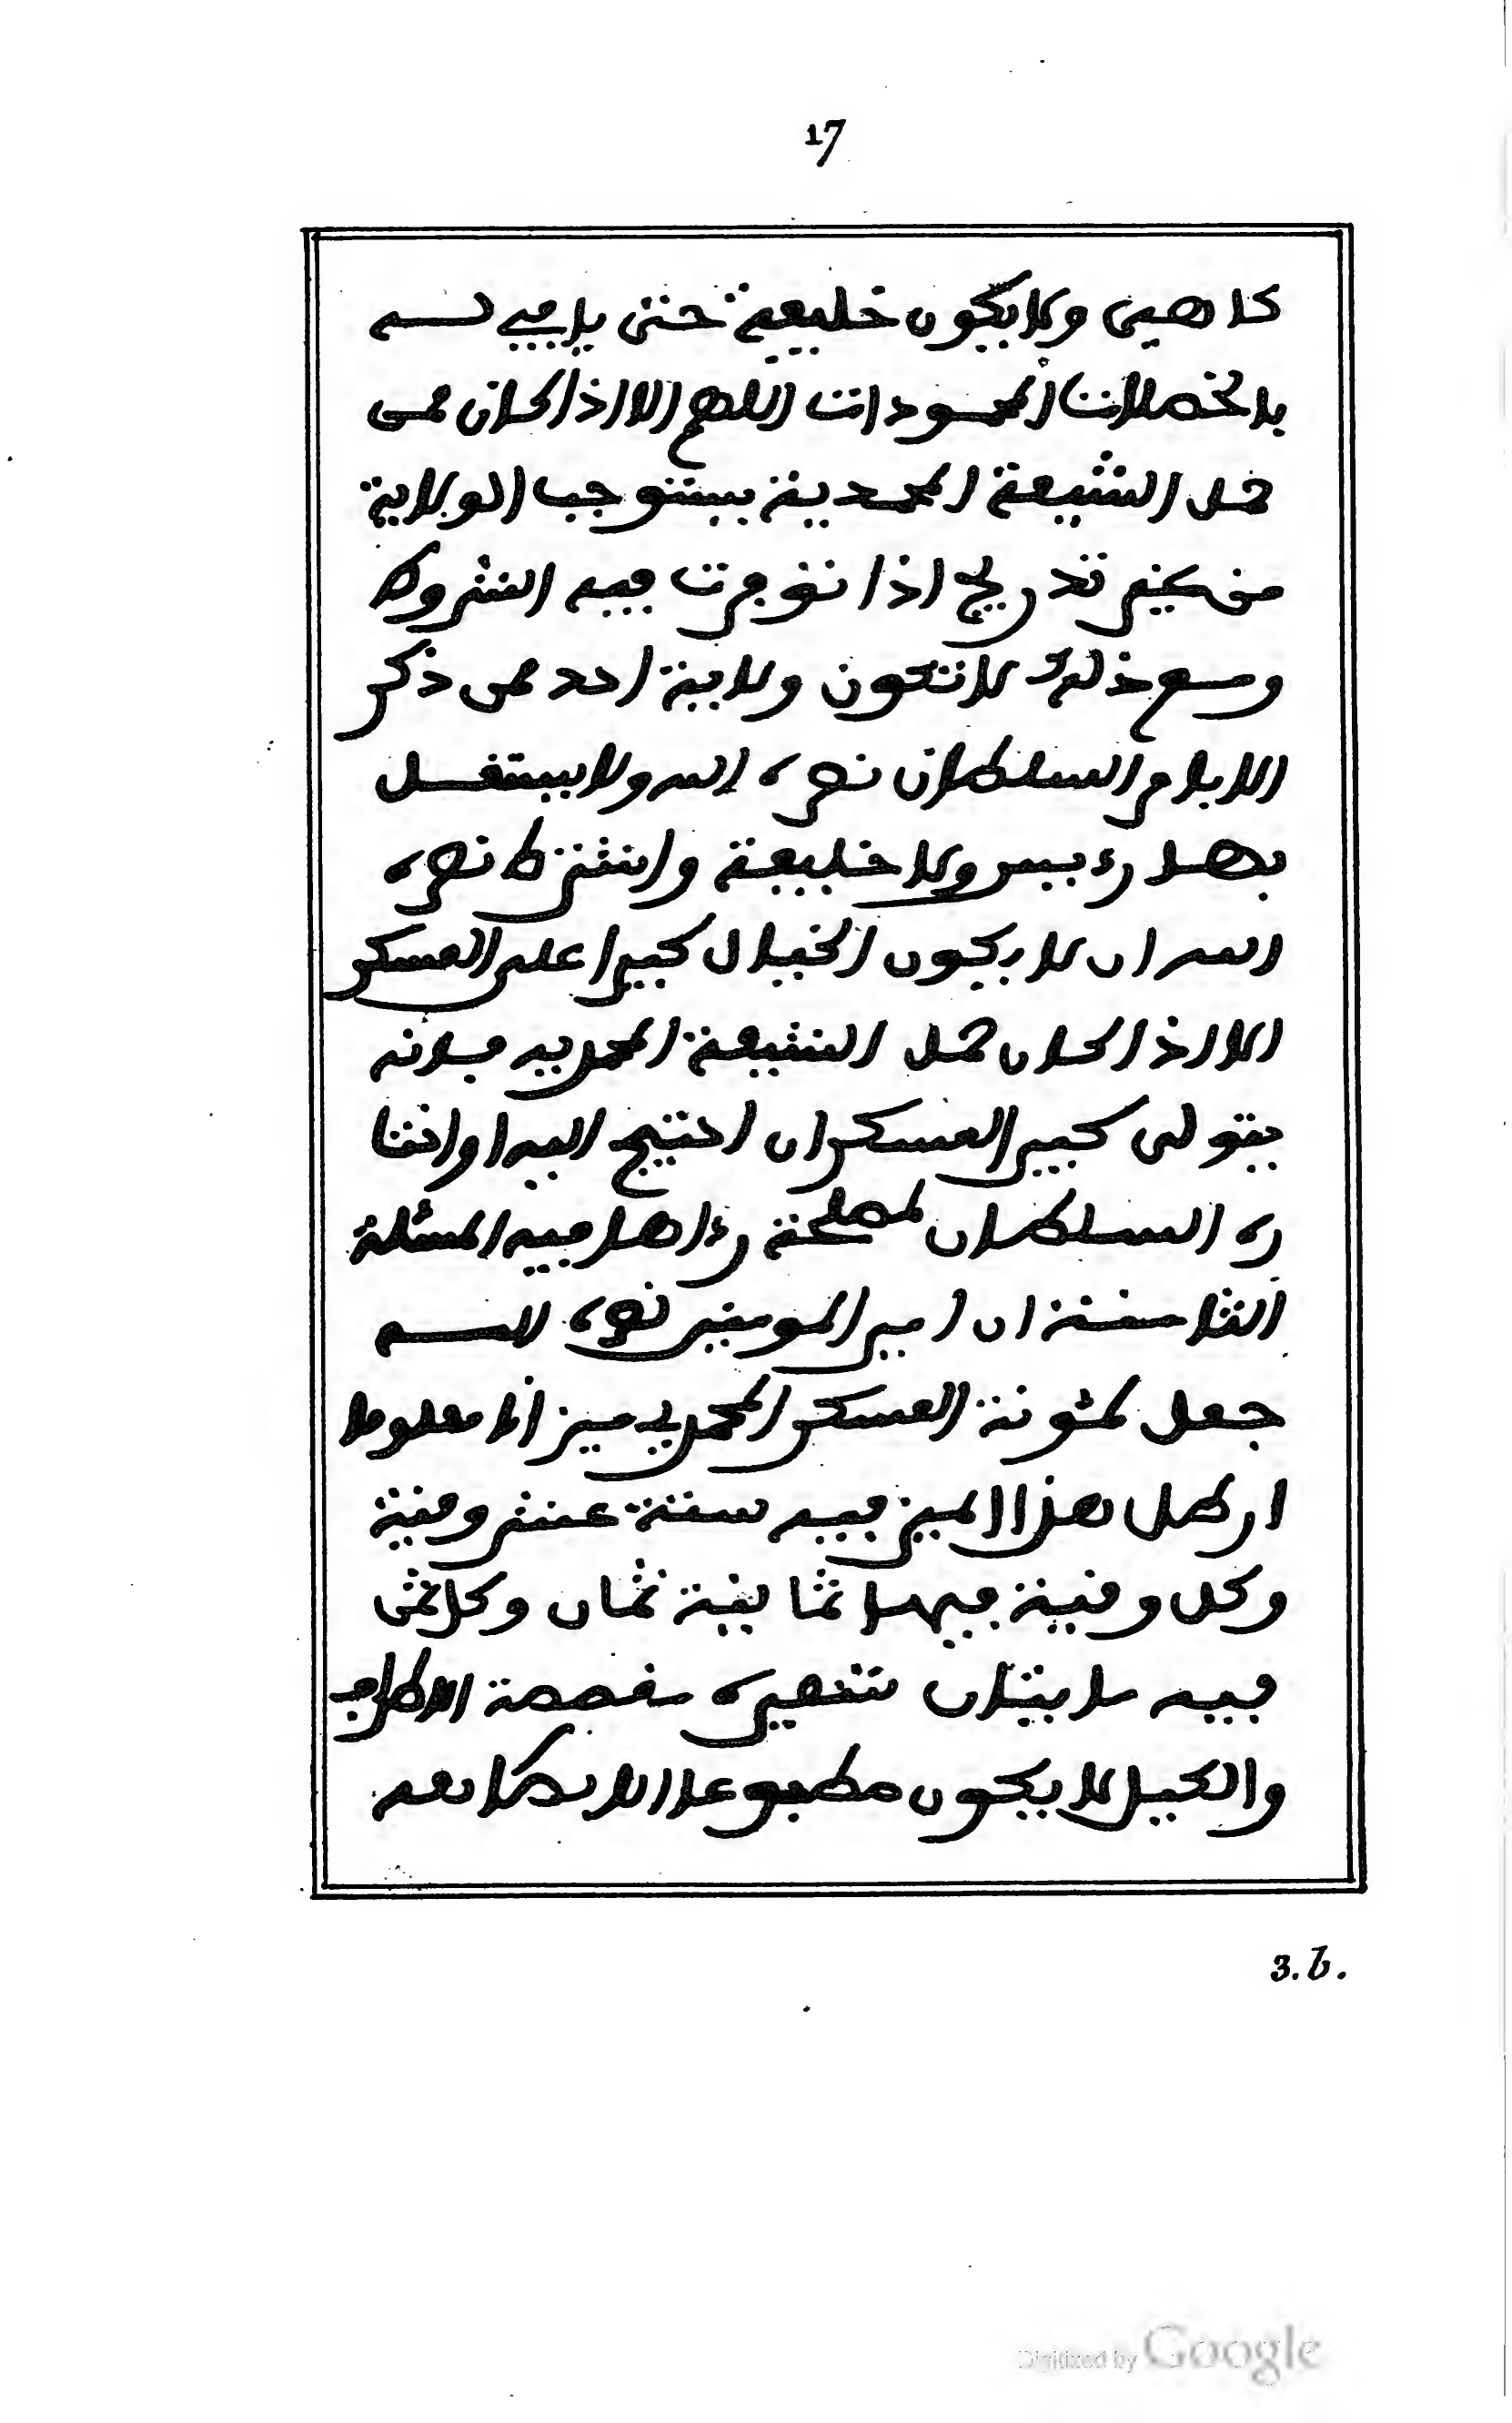 17
كاهيى ولايكون خليفة حتى ياتى
بالخصلات المحمودات اللهم الا اذا كان ممن
حمل الشيعة المحمدية يستوجب الولاية
من غير تدريج اذا توفرت فيه الشروط
ومع ذلك لا تكون ولاية احد ممن ذكر
الا بامر السلطان نصره الله ولا يستقل
بها رءيس ولا خليفة واشترط نصره
الله ان لا يكون الخيال كبيرا على العسكر
الا اذا كان حمل الشيعة المحمديه فانه
يتولى كبير العسكر ان احتيج اليه او اختا
ره السلطان لمصلحة رءاها فيه المسئلة
الثامنة ان امير المومنين نصره الله
جعل لمئونة العسكر المحمدي ميزانا معلوما
ارطل هذا الميز فيه ستة عشر وفية
وكل وفية فيها ثمانية ثمان وكل ثمن
فيه
والكيل لا يكون مطبوعا الا
3.b.
Digitized by Google